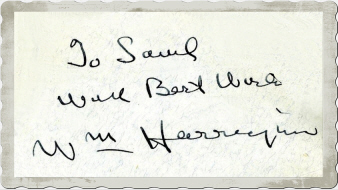 To Saul
With Best Wishes
Wm Harrington